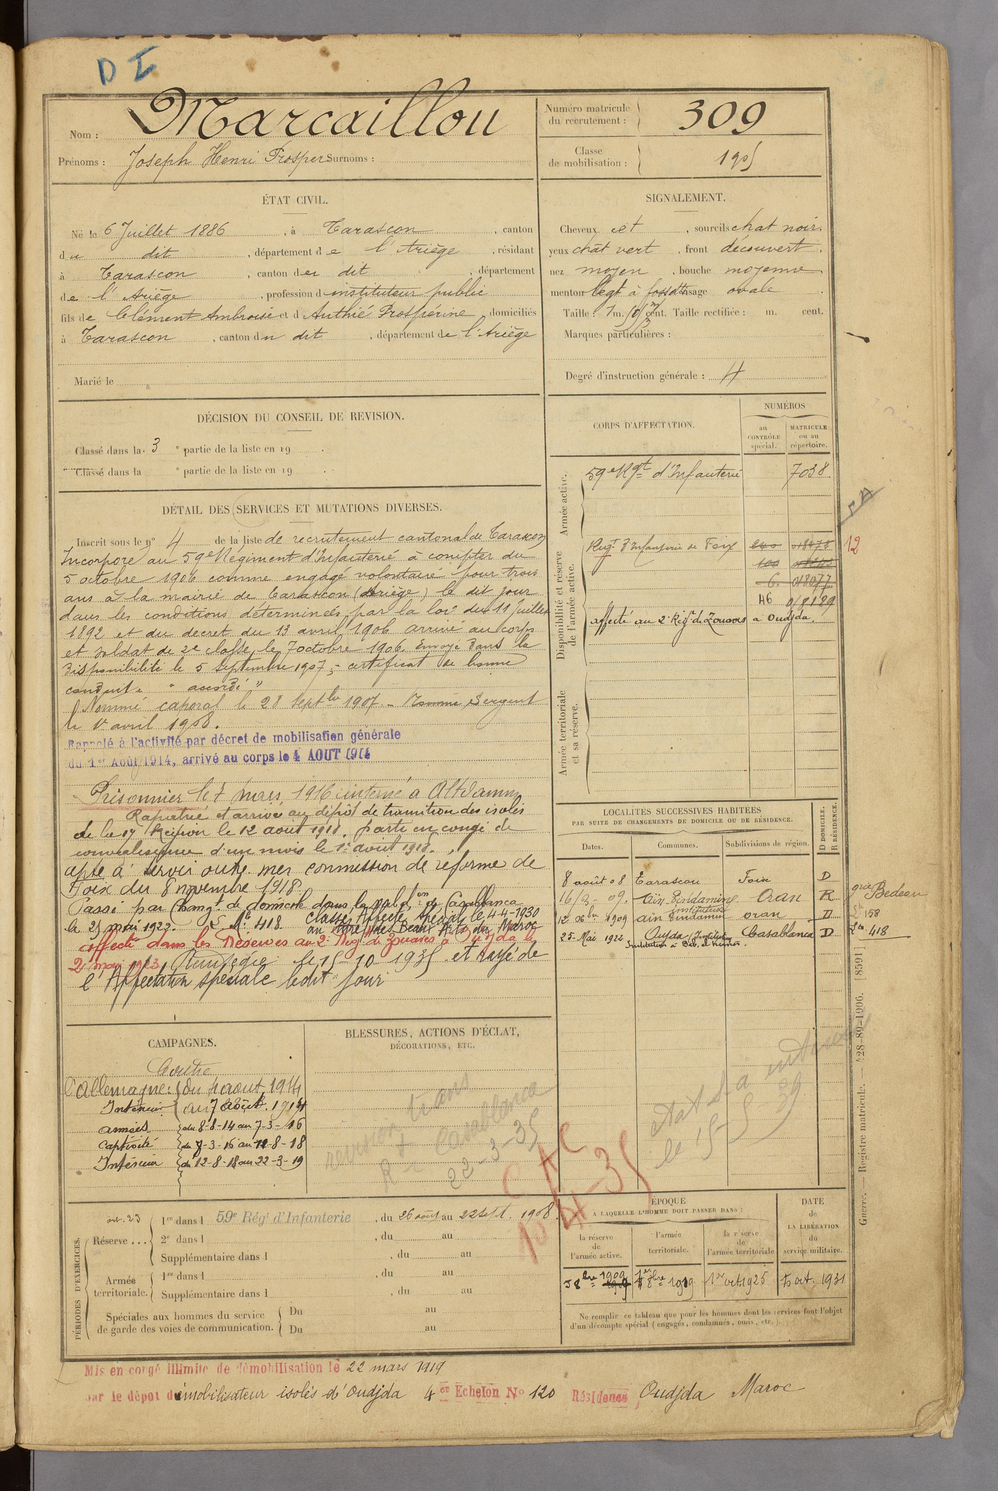 D I
Nom : Marcaillou
Prénoms : Joseph Henri Prosper Surnoms :
Numéro matricule du recrutement : 309
Classe de mobilisation : 1905
ÉTAT CIVIL.
Né le 6 Juillet 1886, à Tarascon, canton
du dit, département de l'Ariège, résidant
à Tarascon, canton du dit, département
de l'Ariège, profession d'instituteur public
fils de Clément Ambroise et d'Authié Prosperine, domiciliés
à Tarascon, canton du dit, département de l'Ariège
Marié le
SIGNALEMENT.
Cheveux et, sourcils chat noir.
yeux chat vert, front découvert.
nez moyen, bouche moyenne
menton légt à fossette visage ovale
Taille : 1 m. cent. Taille rectifiée : m. cent.
Marques particulières :
Degré d'instruction générale : 4
DÉCISION DU CONSEIL DE REVISION.
Classé dans la 3e partie de la liste en 19 .
Classé dans la e partie de la liste en 19 .
DÉTAIL DES SERVICES ET MUTATIONS DIVERSES.
Inscrit sous le n° 4 de la liste de recrutement cantonal de Tarascon
Incorporé au 59e Régiment d'Infanterie à compter du
5 octobre 1906 comme engagé volontaire pour trois
ans à la mairie de Tarascon (Ariège) le dit jour
dans les conditions déterminées par la loi du 11 Juillet
1892 et du décret du 13 avril 1906 arrivé au corps
et soldat de 2e classe le 7 octobre 1906. Envoyé dans la
disponibilité le 5 septembre 1907, certificat de bonne
conduite " accordé "
Nommé caporal le 28 septbre 1907. Nommé Sergent
le 1er avril 1908.
Rappelé à l'activité par décret de mobilisation générale
du 1er Août 1914, arrivé au corps le 4 AOUT 1914
Prisonnier le 7 mars 1916 interné à Altdamm
Rapatrié et arrivé au dépôt de transition des isolés
de la 17e Région le 12 août 1918. Parti en congé de
convalescence d'un mois le août 1918.
apte à servir outre mer commission de réforme de
Foix du 8 novembre 1918
Passé par changt de domicile dans la subdivon de Casablanca
le 25 mai 1927. Mle 418 Classé Affecté Spécial le 4-4-1930
au Beaux Arts du Maroc
affecté dans les Réserves au 2e Rég. de Zouaves à Oujda le
2 mai 1923 le 15 10 1935 et rayé de
l'Affectation spéciale ledit jour
CORPS D'AFFECTATION.
NUMÉROS
au CONTRÔLE spécial.
MATRICULE ou au répertoire.
Armée active.
59e Rgt d'Infanterie 7038
Disponibilité et réserve de l'armée active.
Regt d'Infanterie de Foix
46 12
affecté au 2e Régt de Zouaves à Oudjda.
Armée territoriale et sa réserve.
LOCALITÉS SUCCESSIVES HABITÉES
PAR SUITE DE CHANGEMENTS DE DOMICILE OU DE RÉSIDENCE.
Dates. Communes. Subdivisions de région. D DOMICILE. R RÉSIDENCE.
8 août 08 Tarascon Foix D
Oran R Bedeau
1909 Oran D 158
25 Mai 1926 Oujda Casablanca D 418
CAMPAGNES.
Contre
l'Allemagne : du 4 août 1914
Intérieur au 7 Août 1914
armées du 8-8-14 au 7-3-16
captivité du 7-3-16 au 12-8-18
Intérieur du 12-8-18 au 22-3-19
BLESSURES, ACTIONS D'ÉCLAT,
DÉCORATIONS, ETC.
révision trans
Casablanca
22-3-35
PÉRIODES D'EXERCICES.
Réserve ... 1re dans l 59e Rég. d'Infanterie, du 26 août au 22 sept. 1908.
2e dans l , du au
Supplémentaire dans l , du au
Armée territoriale. 1re dans l , du au
Supplémentaire dans l , du au
Spéciales aux hommes du service de garde des voies de communication. Du au
Du au
ÉPOQUE
À LAQUELLE L'HOMME DOIT PASSER DANS :
la réserve de l'armée active.
l'armée territoriale.
la réserve de l'armée territoriale
DATE de LA LIBÉRATION du service militaire.
1er oct 1925
oct. 1931
Ne remplir ce tableau que pour les hommes dont les services font l'objet
d'un décompte spécial (engagés, condamnés, omis, etc.).
Guerre. — Registre matricule. — [8591]
Mis en congé illimité de démobilisation le 22 mars 1919
par le dépôt démobilisateur isolés d'Oudjda 4e Echelon No 120 Résidence Oudjda Maroc